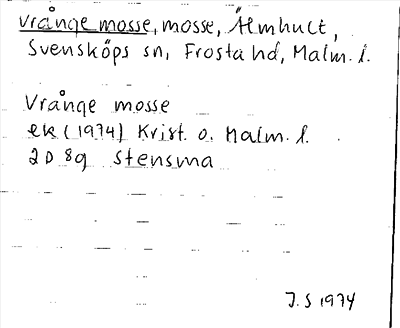 Vrånge mosse, mosse, Älmhult,
Svensköps sn, Frosta hd, Malm. l.
Vrånge mosse
ek (1974) Krist. o. Malm. l.
2D 8g Stensma
J.S 1974